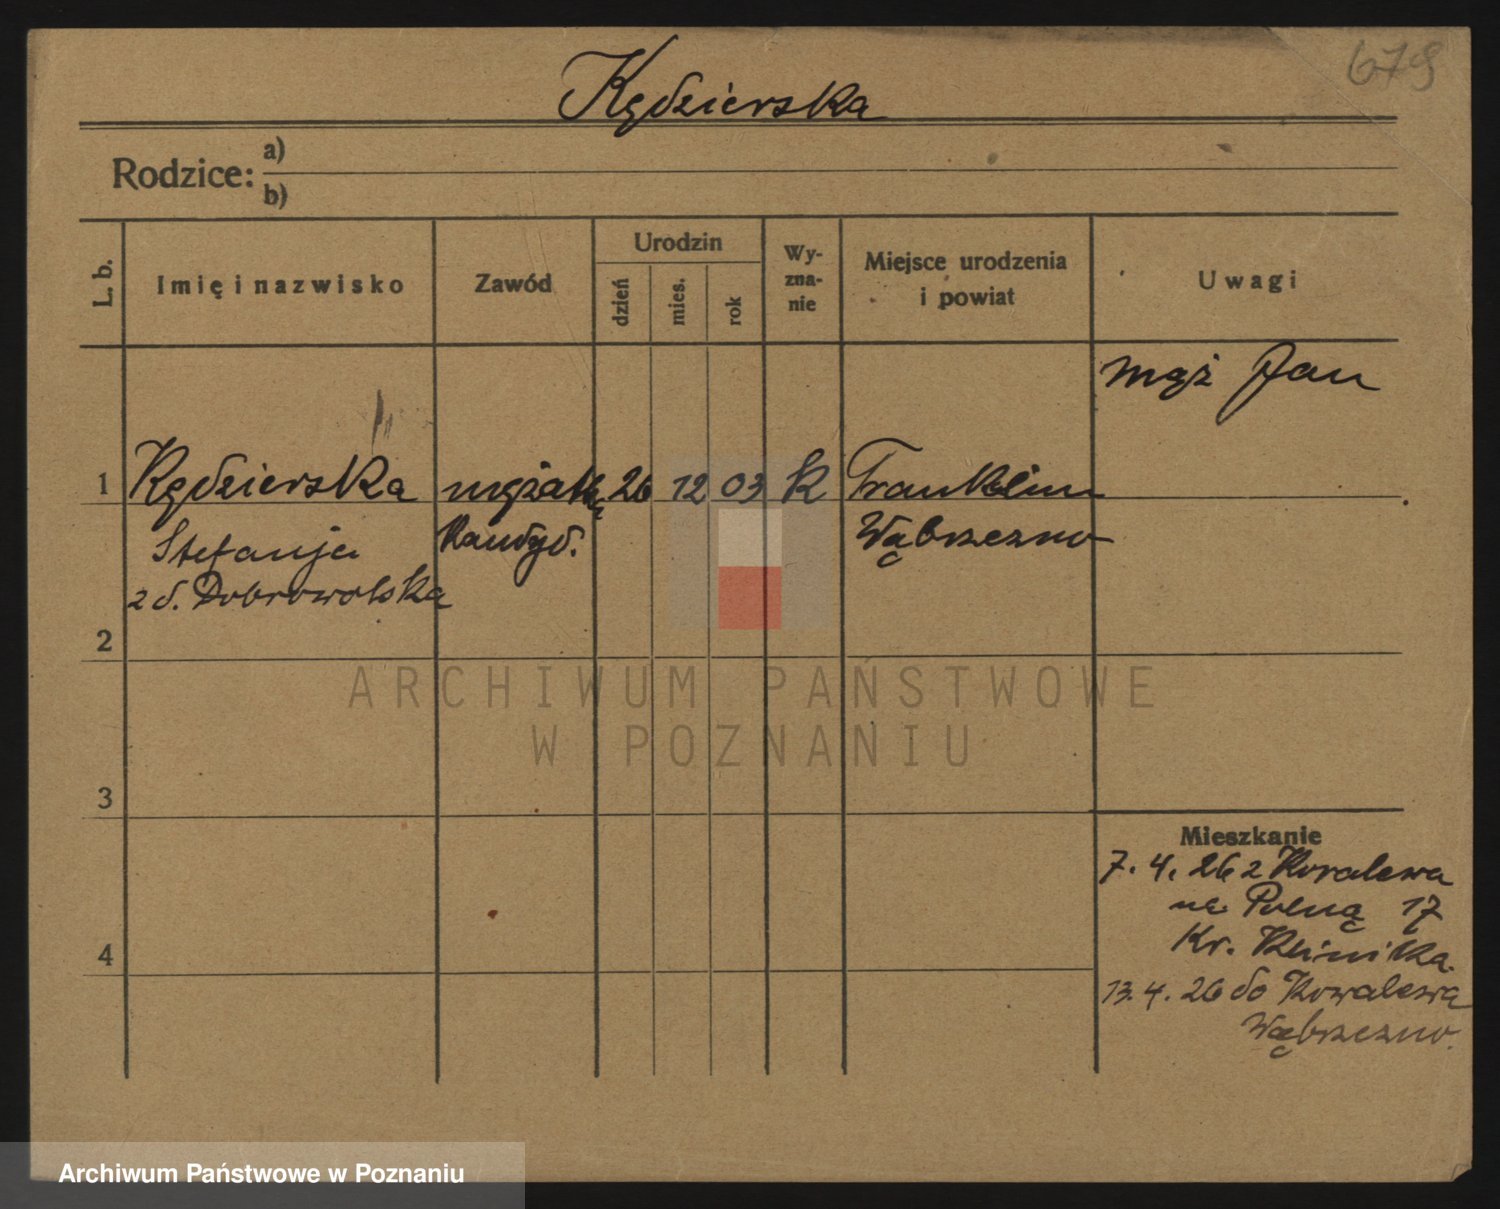 679
Kędzierska
Rodzice: a)
b)
L. b.
Imię i nazwisko
Zawód
Urodzin
dzień
mies.
rok
Wy-
zna-
nie
Miejsce urodzenia
i powiat
Uwagi
mąż Jan
1 Kędzierska mężatka 26 12 03 k Franklin
Stefanja
z d. Dobrowolska
Kandyd.
Wąbrzezno
2
3
4
ARCHIWUM PAŃSTWOWE
W POZNANIU
Mieszkanie
7. 4. 26 z Kowalewa
na Polną 17
Kr. Klinika.
13. 4. 26 do Kowalewa
Wąbrzezno.
Archiwum Państwowe w Poznaniu